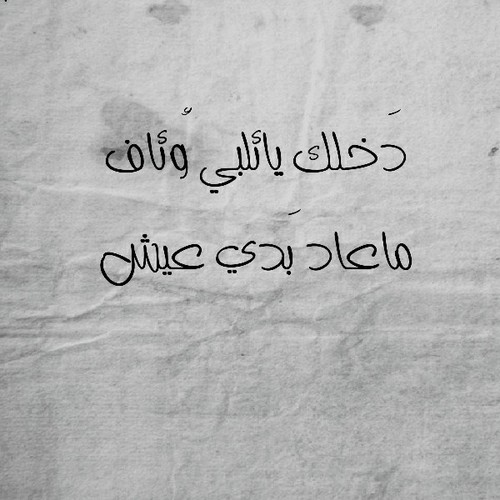 دَخلك يائلبي وُئاف
ماعاد بَدي عيش